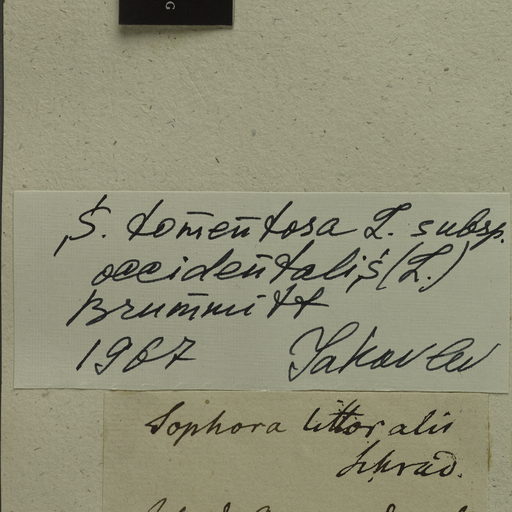 S. tomentosa L. subsp.
occidentalis (L.)
Brummitt
1967 Jakovlev
Sophora littoralis
Schrad.